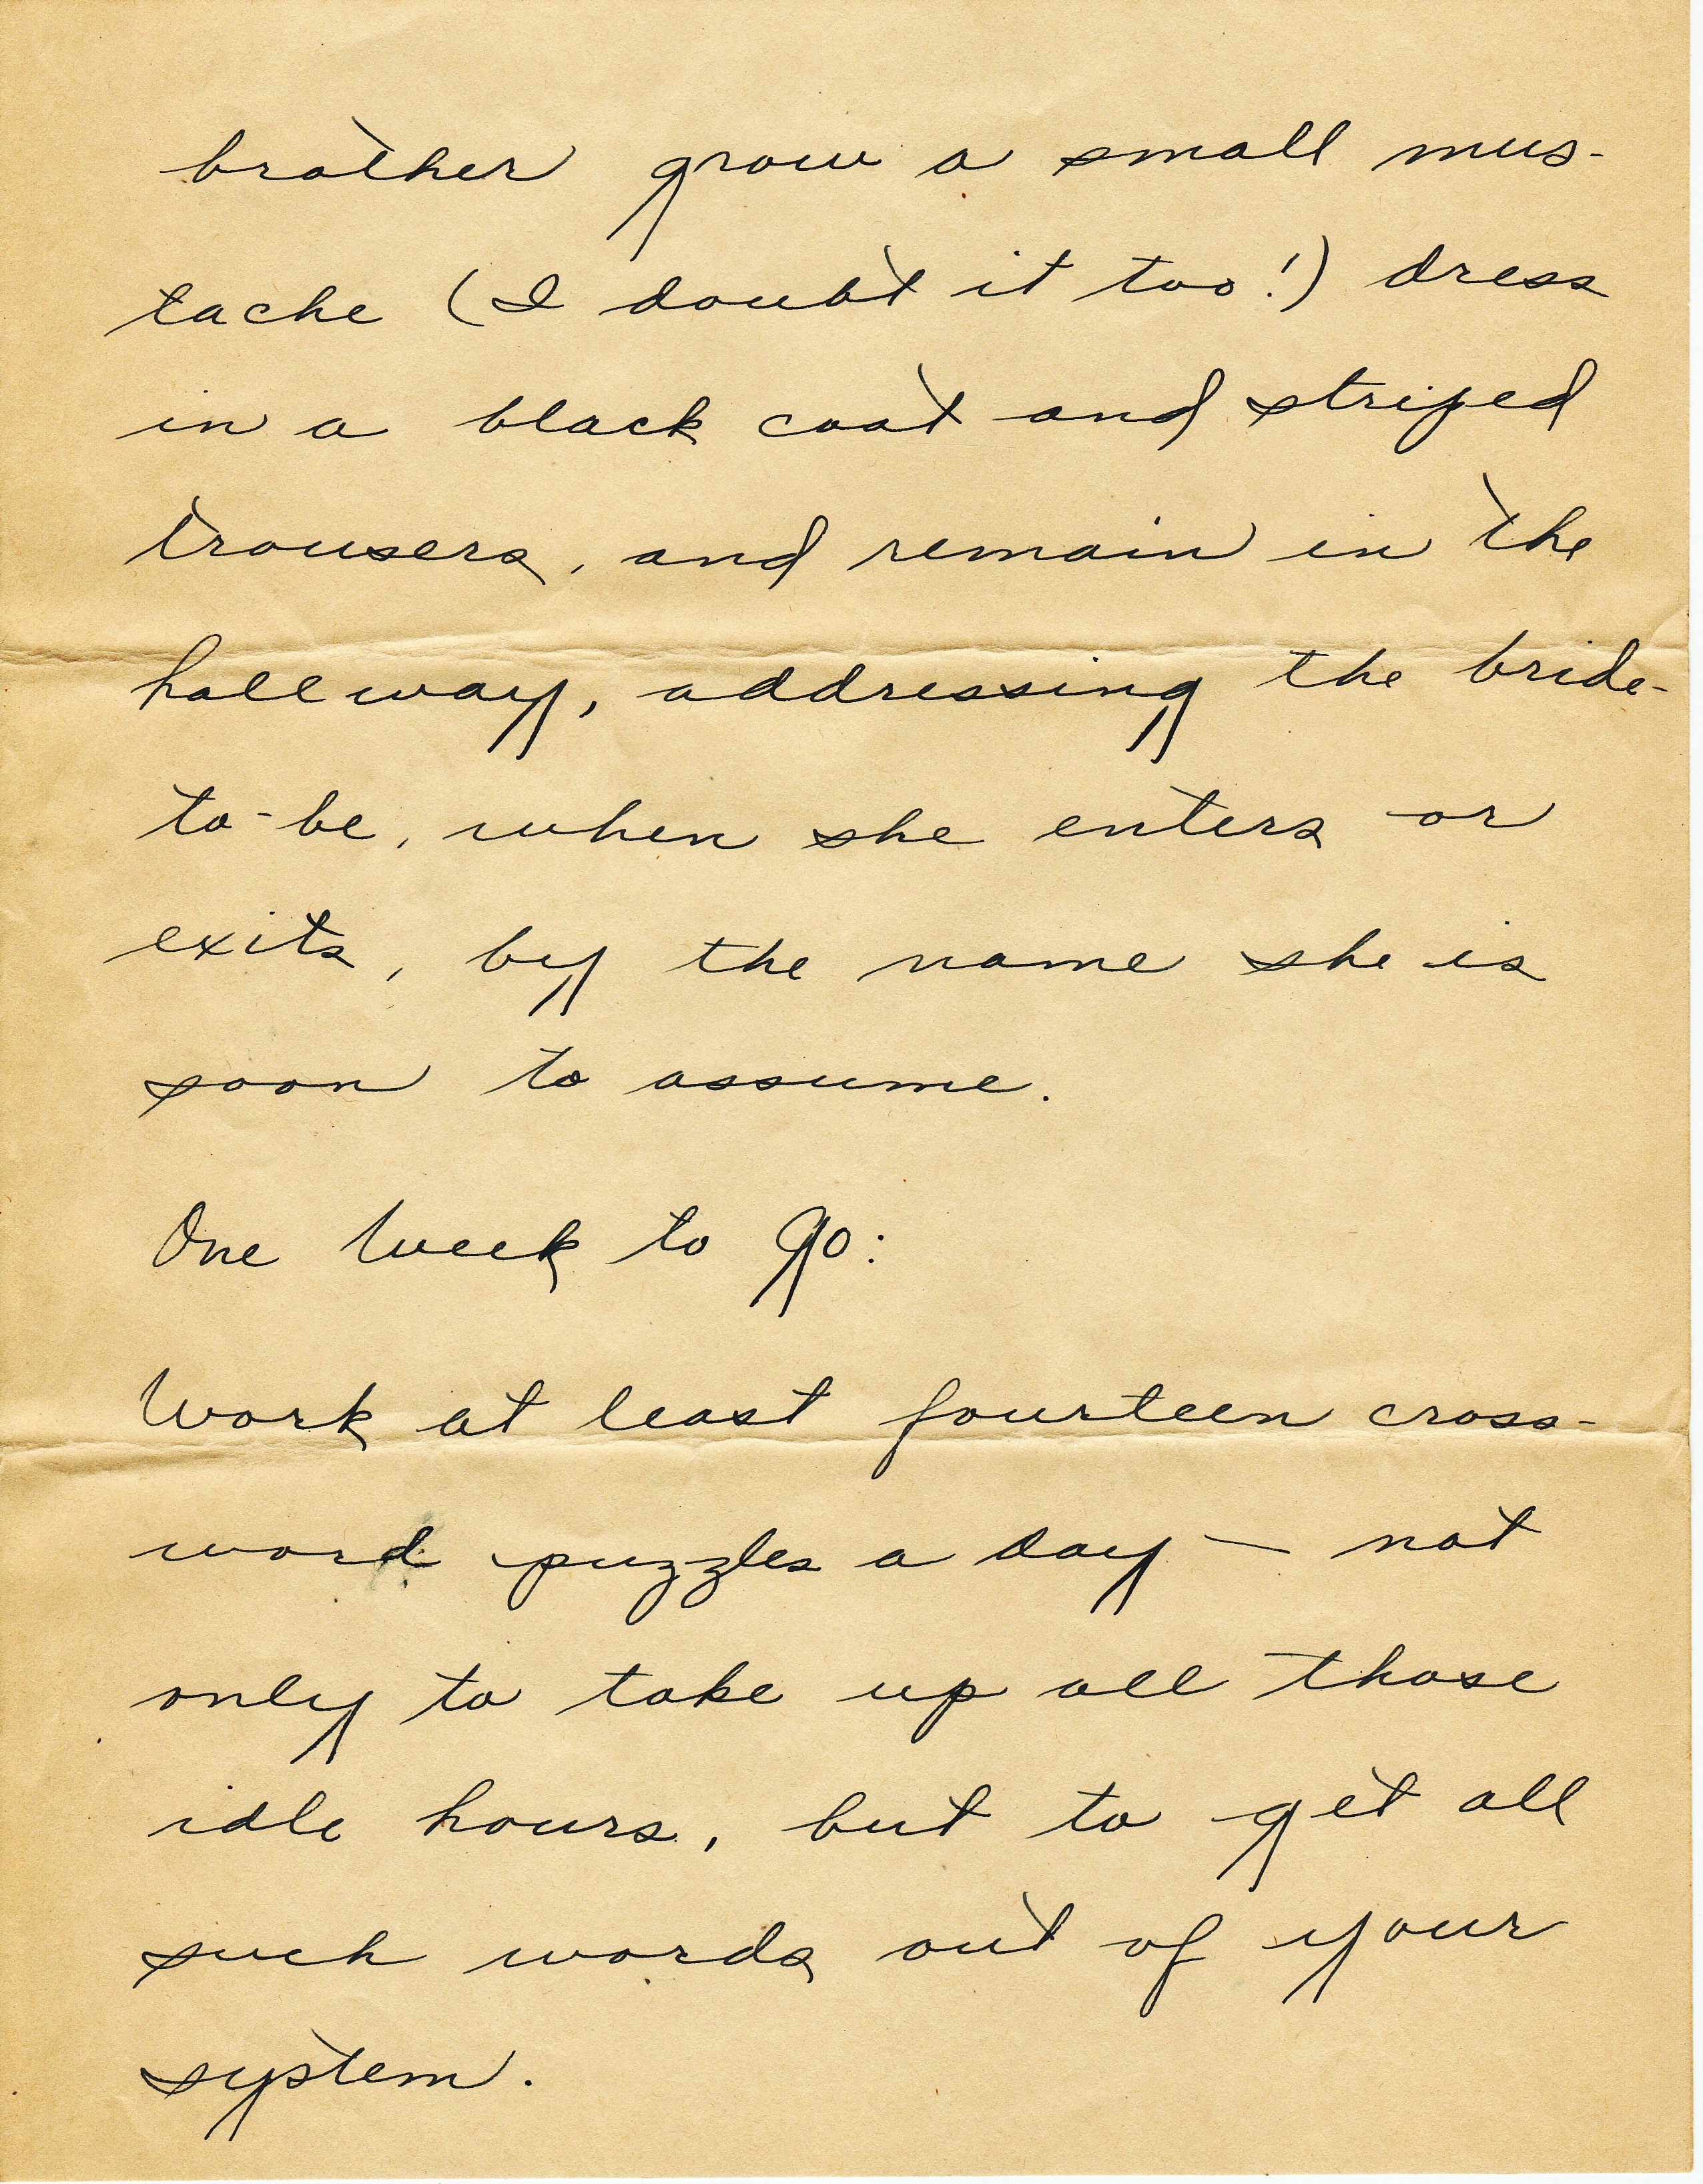 brother grow a small mus-
tache (I doubt it too!) dress
in a black coat and striped
trousers, and remain in the
hallway, addressing the bride-
to-be, when she enters or
exits, by the name she is
soon to assume.
One Week to go:
Work at least fourteen cross-
word puzzles a day — not
only to take up all those
idle hours, but to get all
such words out of your
system.